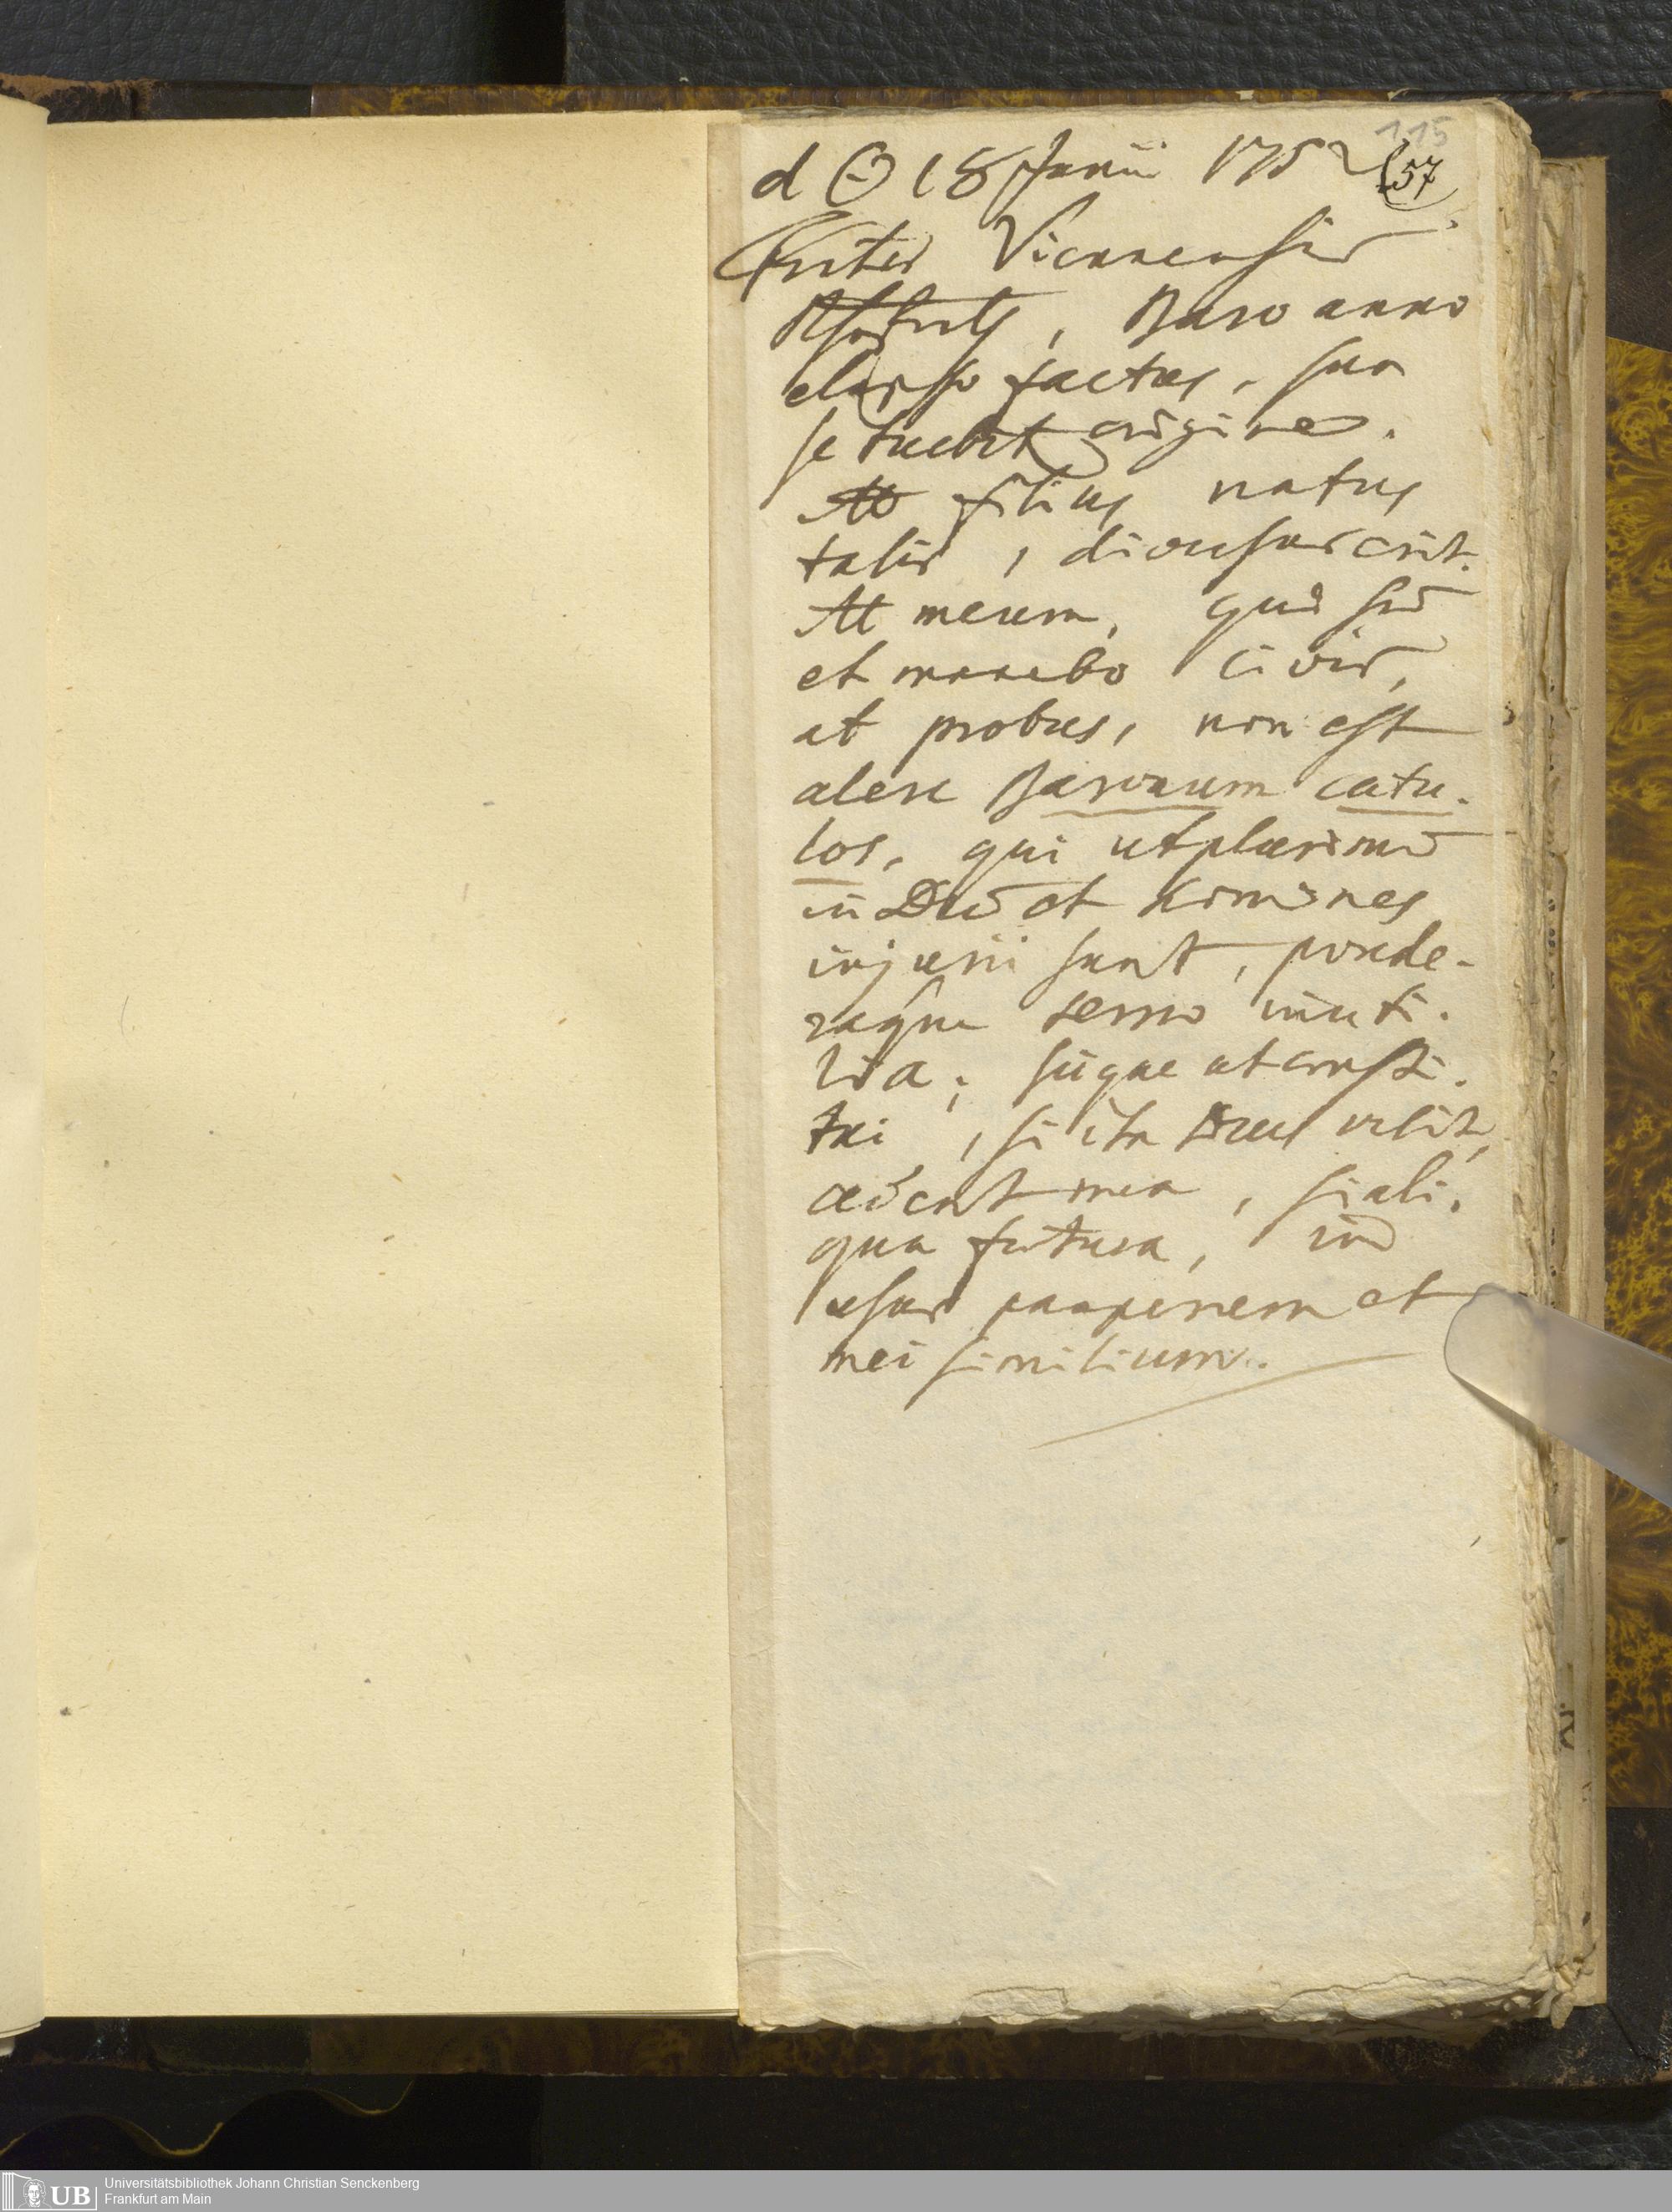 115
d ☉ 18 Junii 1752
57
Frater Viennensis
, Baro anno
elapso factus, sua
se tuebit origine.
At filius natus
talis, divulsus erit.
At meum, qui sū
et manebo civis,
at probus, non est
alere Baronum catu.
los, qui utplurimū
in Deū et homines
injurii sunt, ponde-
raque terrae inuti.
lia; sicque ut consti.
tui, si ita Deus velit,
cedent mea, si ali.
qua futura, in
usus pauperum et
mei similium.
UB
Universitätsbibliothek Johann Christian Senckenberg
Frankfurt am Main